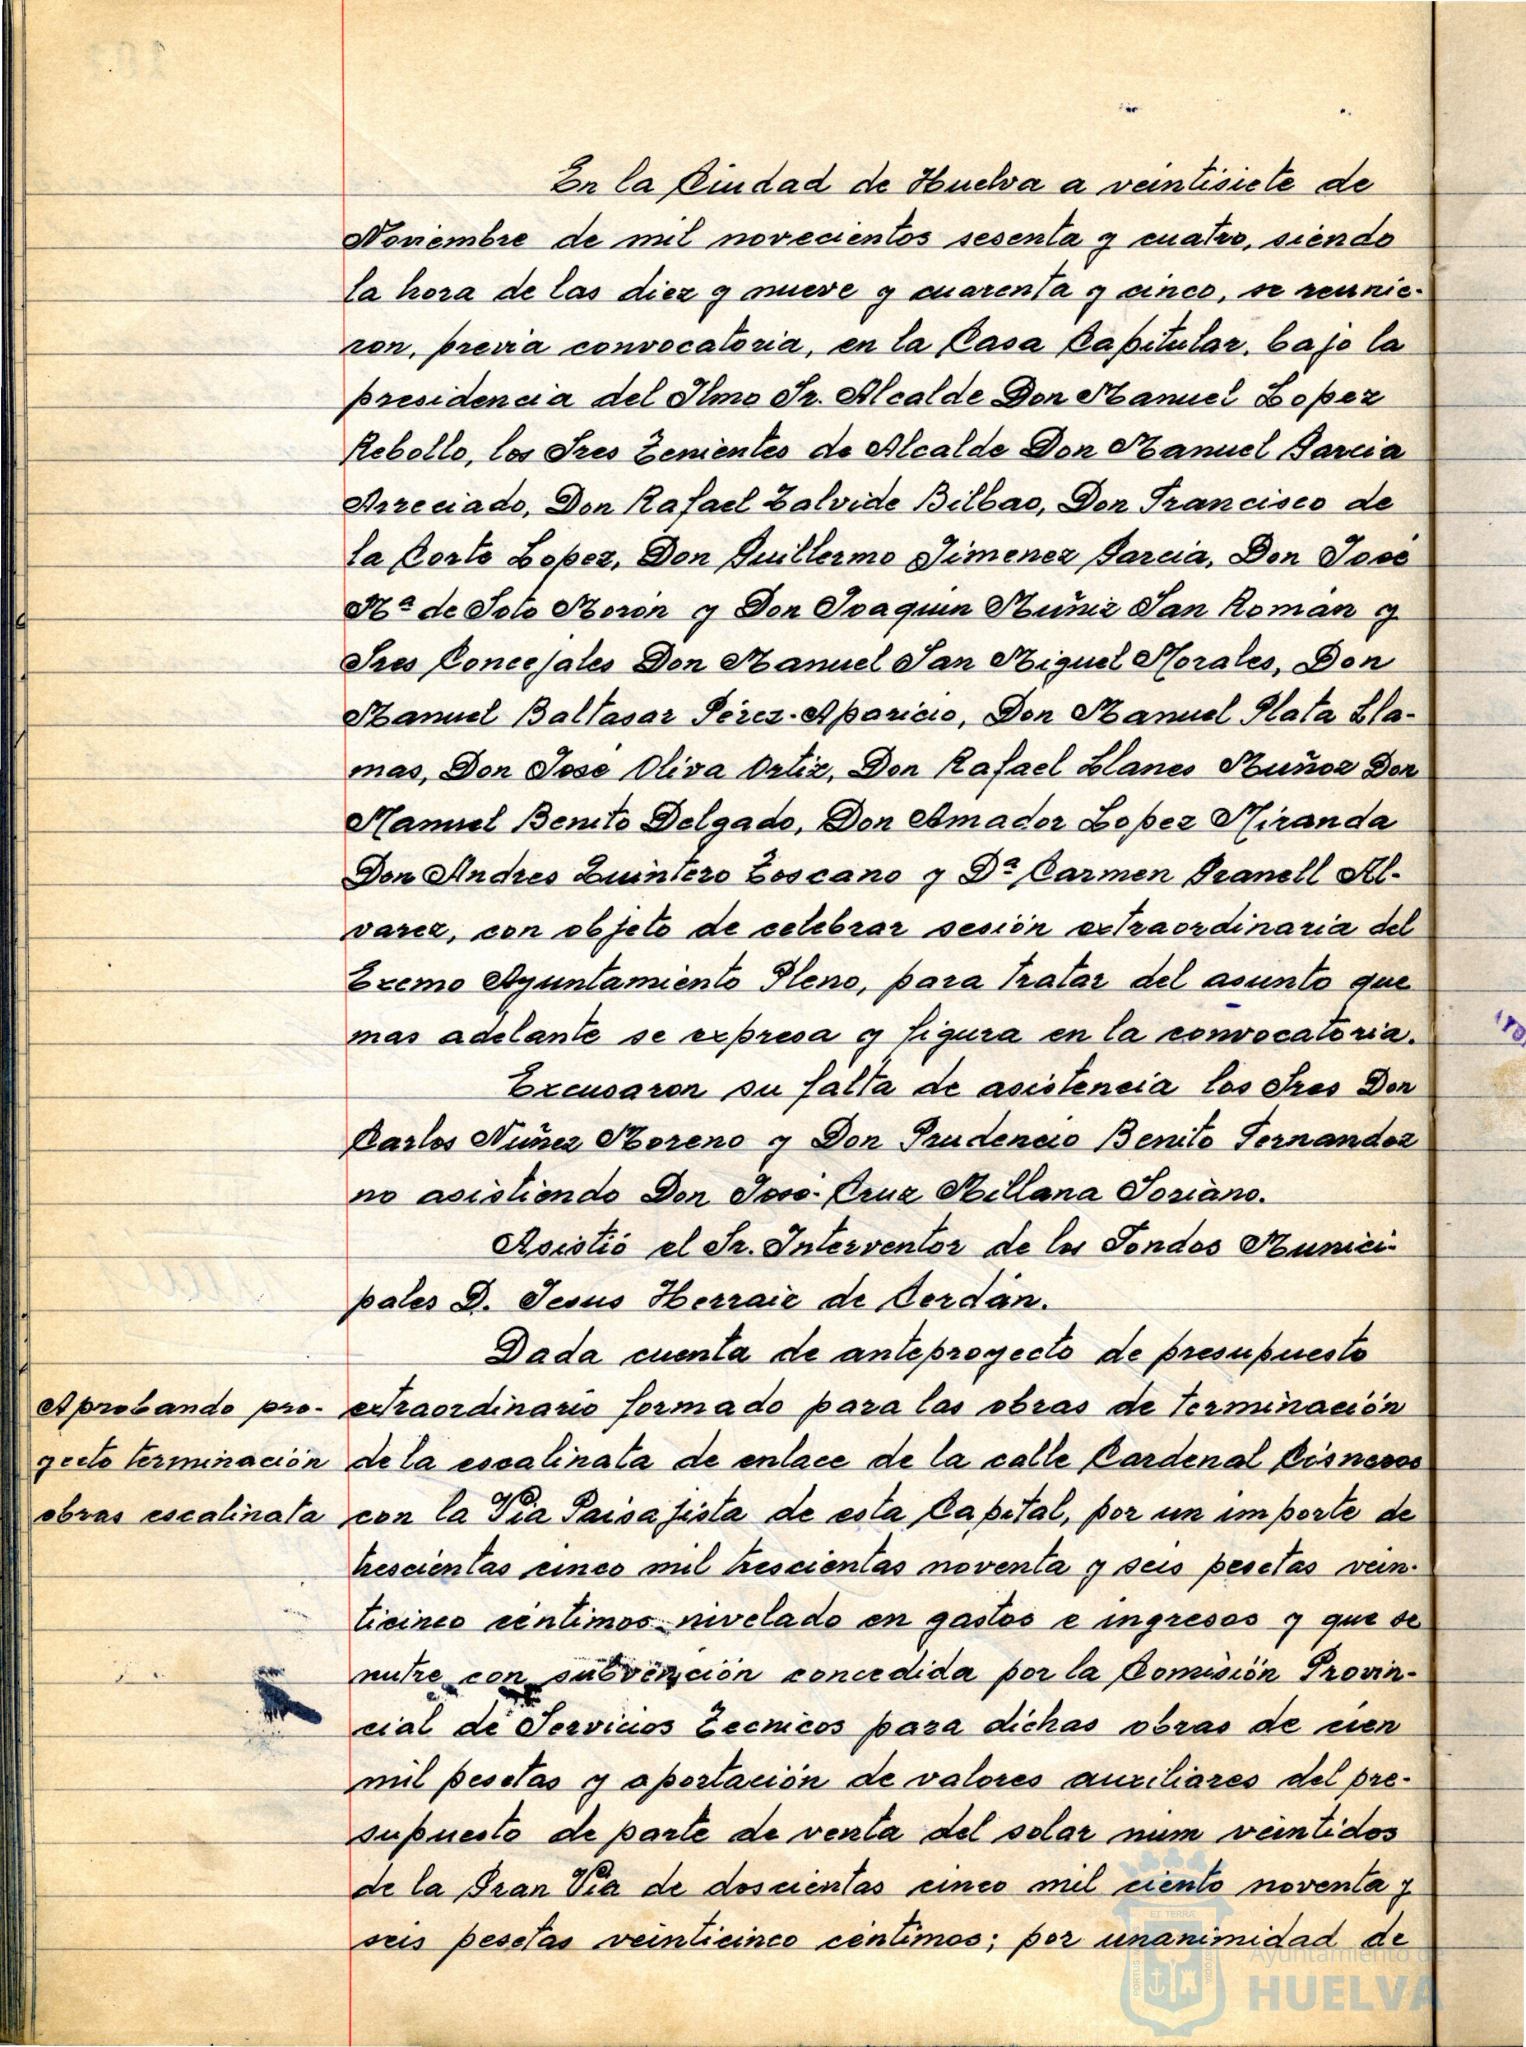 En la Ciudad de Huelva a veintisiete de
Noviembre de mil novecientos sesenta y cuatro, siendo
la hora de las diez y nueve y cuarenta y cinco, se reunie-
ron, previa convocatoria, en la Casa Capitular, bajo la
presidencia del Ilmo Sr. Alcalde Don Manuel Lopez
Rebollo, los Sres Tenientes de Alcalde Don Manuel Garcia
Arreciado, Don Rafael Zalvide Bilbao, Don Francisco de
la Corte Lopez, Don Guillermo Jimenez Garcia, Don José
Mª de Soto Morón y Don Joaquin Muñiz San Román y
Sres Concejales Don Manuel San Miguel Morales, Don
Manuel Baltasar Pérez-Aparicio, Don Manuel Plata Lla-
mas, Don José Oliva Ortiz, Don Rafael Llanes Muñoz Don
Manuel Benito Delgado, Don Amador Lopez Miranda
Don Andres Quintero Toscano y Dª Carmen Granell Al-
varez, con objeto de celebrar sesión extraordinaria del
Excmo Ayuntamiento Pleno, para tratar del asunto que
mas adelante se expresa y figura en la convocatoria.
Excusaron su falta de asistencia los Sres Don
Carlos Núñez Moreno y Don Prudencio Benito Fernandez
no asistiendo Don José-Cruz Millana Soriano.
Asistió el Sr. Interventor de los Fondos Munici-
pales D. Jesus Herraiz de Cerdán.
Dada cuenta de anteproyecto de presupuesto
Aprobando pro-
yecto terminación
obras escalinata
extraordinario formado para las obras de terminación
de la escalinata de enlace de la calle Cardenal Cisneros
con la Via Paisajista de esta Capital, por un importe de
trescientas cinco mil trescientas noventa y seis pesetas vein-
ticinco céntimos nivelado en gastos e ingresos y que se
nutre con subvención concedida por la Comisión Provin-
cial de Servicios Tecnicos para dichas obras de cien
mil pesetas y aportación de valores auxiliares del pre-
supuesto de parte de venta del solar num veintidos
de la Gran Via de doscientas cinco mil ciento noventa y
seis pesetas veinticinco céntimos; por unanimidad de
Ayuntamiento de
HUELVA